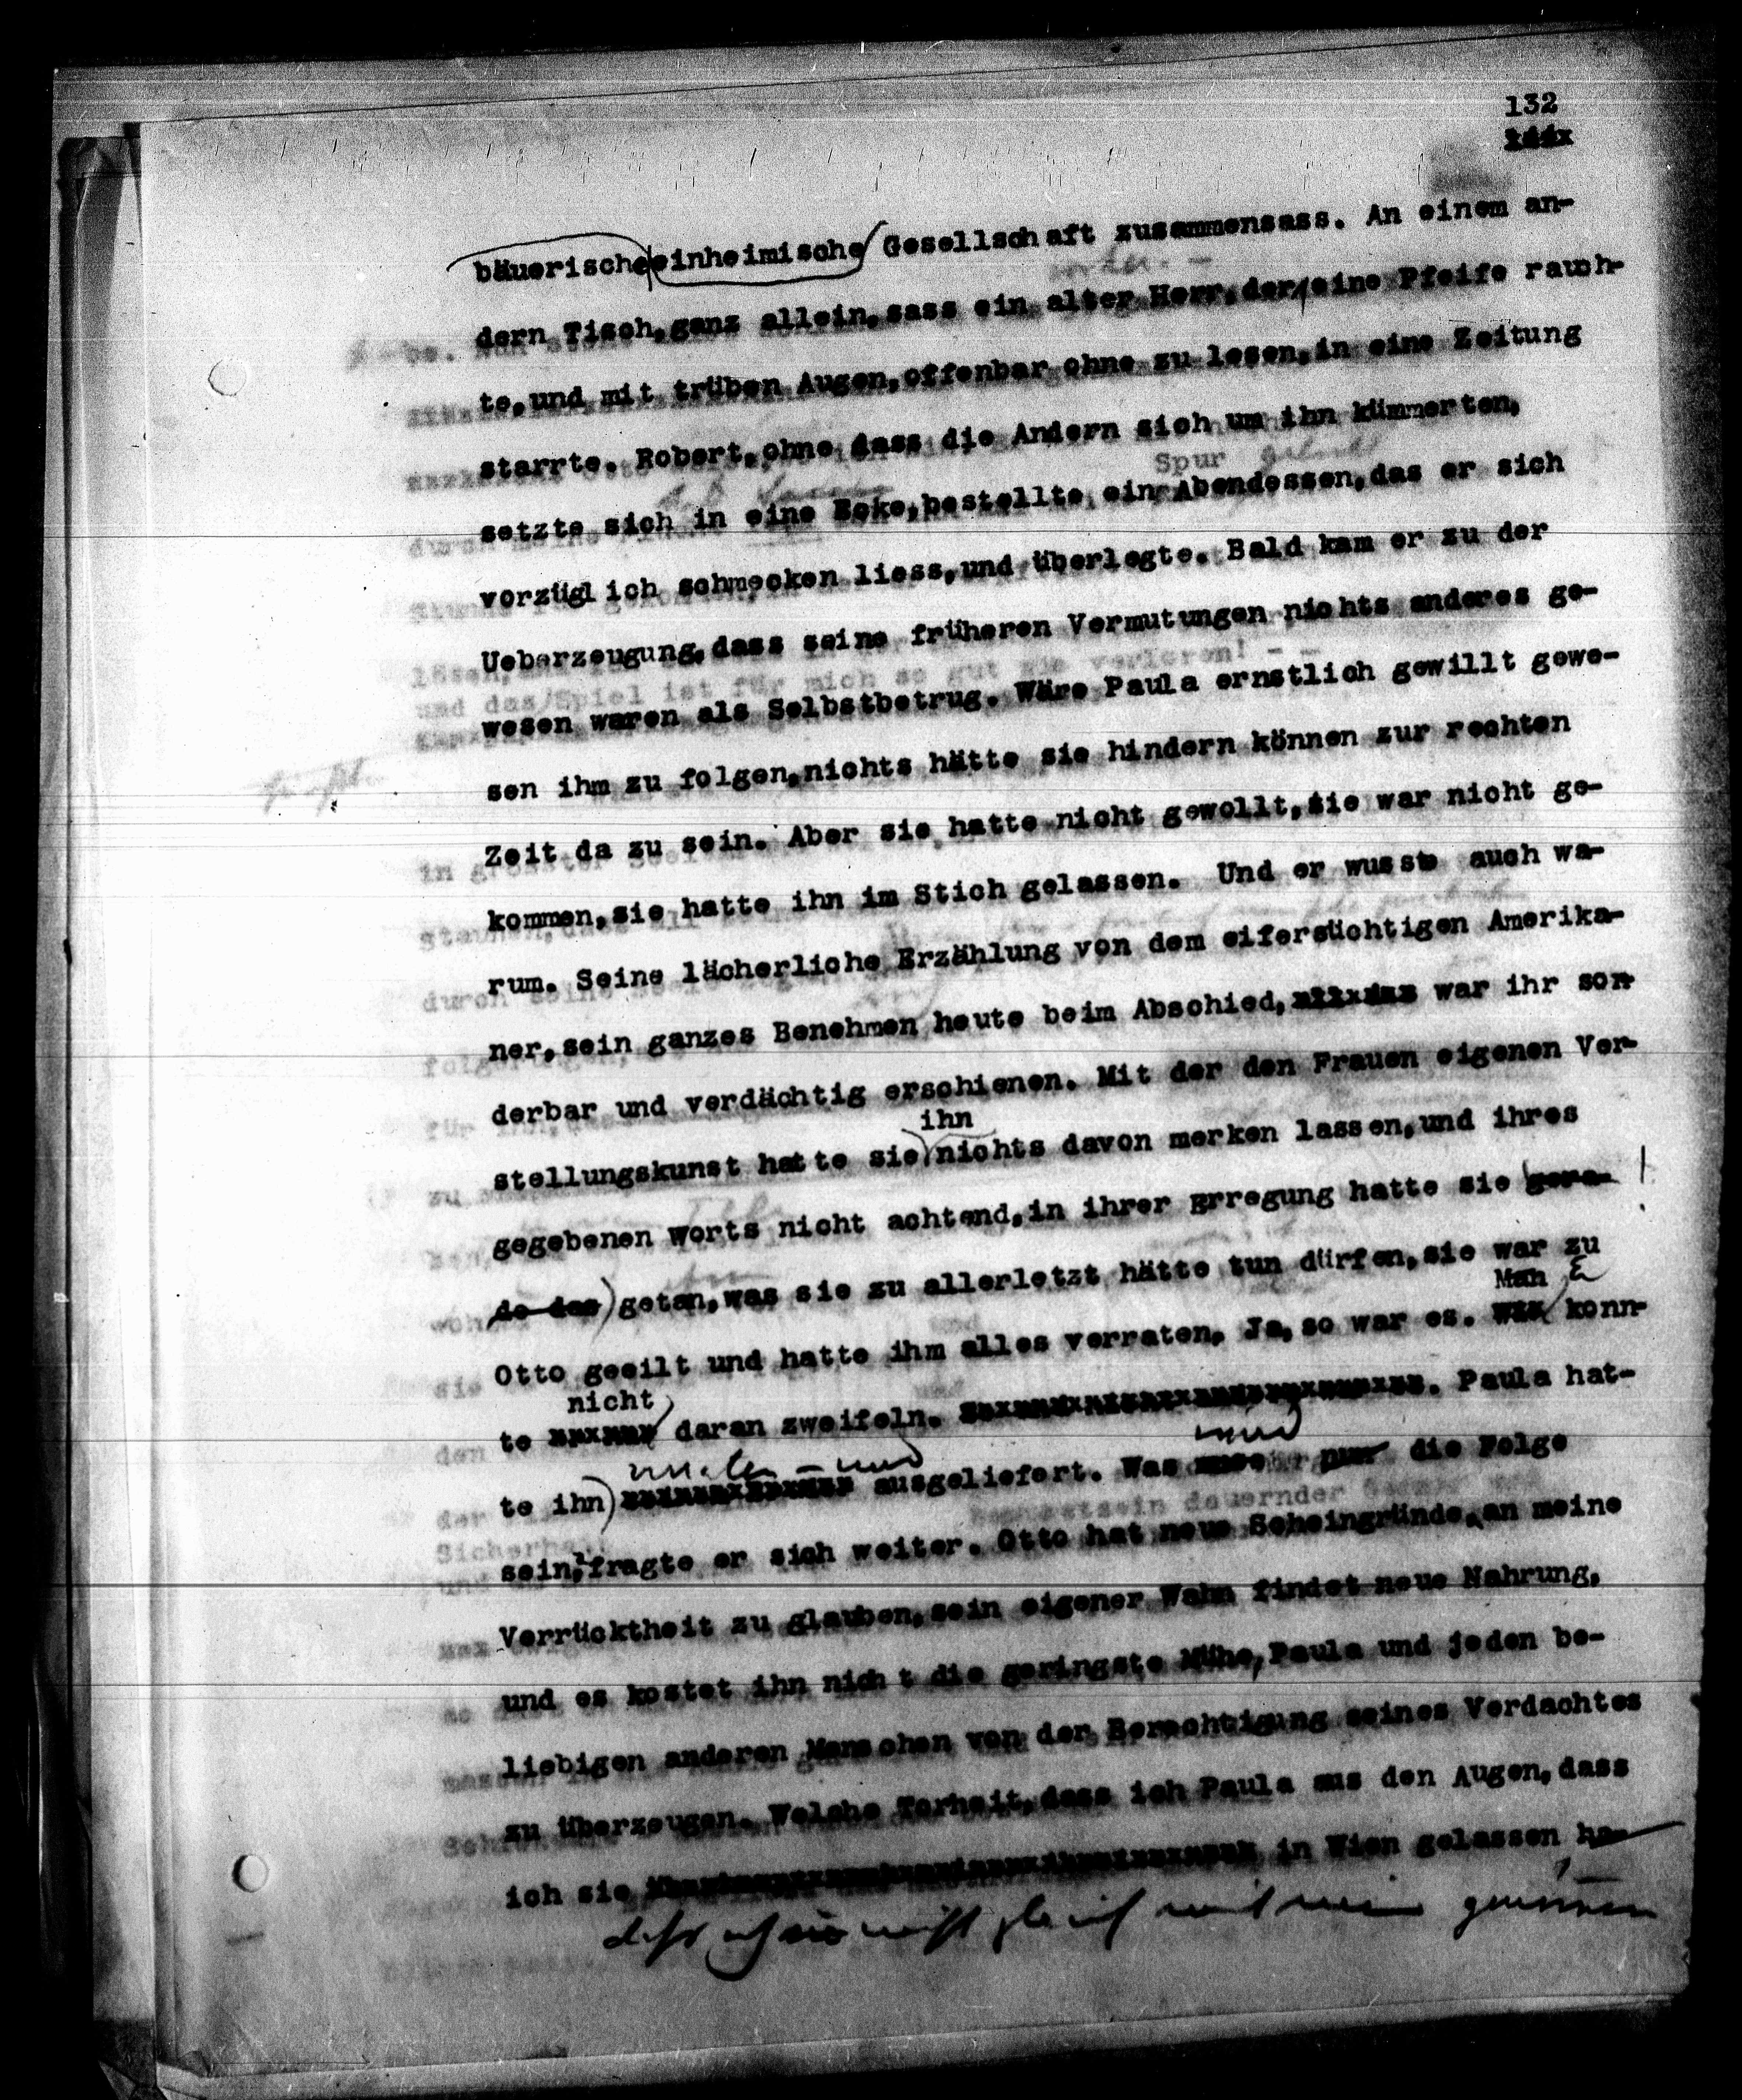 132
bäuerische einheimische Gesellschaft zusammensass. An einem an-
dern Tisch,ganz allein,sass ein alter Herr,der eine Pfeife rauch-
te,und mit trüben Augen,offenbar ohne zu lesen,in eine Zeitung
starrte. Robert,ohne dass die Andern sich um ihn kümmerten,
setzte sich in eine Ecke,bestellte ein Abendessen,das er sich
vorzüglich schmecken liess,und überlegte. Bald kam er zu der
Ueberzeugung,dass seine früheren Vermutungen nichts anderes ge-
wesen waren als Selbstbetrug. Wäre Paula ernstlich gewillt gewe-
sen ihm zu folgen,nichts hätte sie hindern können zur rechten
Zeit da zu sein. Aber sie hatte nicht gewollt,sie war nicht ge-
kommen,sie hatte ihn im Stich gelassen. Und er wusste auch wa-
rum. Seine lächerliche Erzählung von dem eifersüchtigen Amerika-
ner,sein ganzes Benehmen heute beim Abschied, war ihr son-
derbar und verdächtig erschienen. Mit der den Frauen eigenen Ver-
ihn
stellungskunst hatte sie nichts davon merken lassen,und ihres
gegebenen Worts nicht achtend,in ihrer Erregung hatte sie gera-
de das getan,was sie zu allerletzt hätte tun dürfen,sie war zu
Man
Otto geeilt und hatte ihm alles verraten. Ja,so war es. konn-
nicht
te daran zweifeln. Paula hat-
und
te ihn ausgeliefert. Was nur die Folge
sein,fragte er sich weiter. Otto hat neue Scheingründe,an meine
Verrücktheit zu glauben,sein eigener Wahn findet neue Nahrung,
und es kostet ihn nicht die geringste Mühe,Paula und jeden be-
liebigen anderen Menschen von der Berechtigung seines Verdachtes
zu überzeugen. Welche Torheit,dass ich Paula aus den Augen,dass
ich sie in Wien gelassen ha-